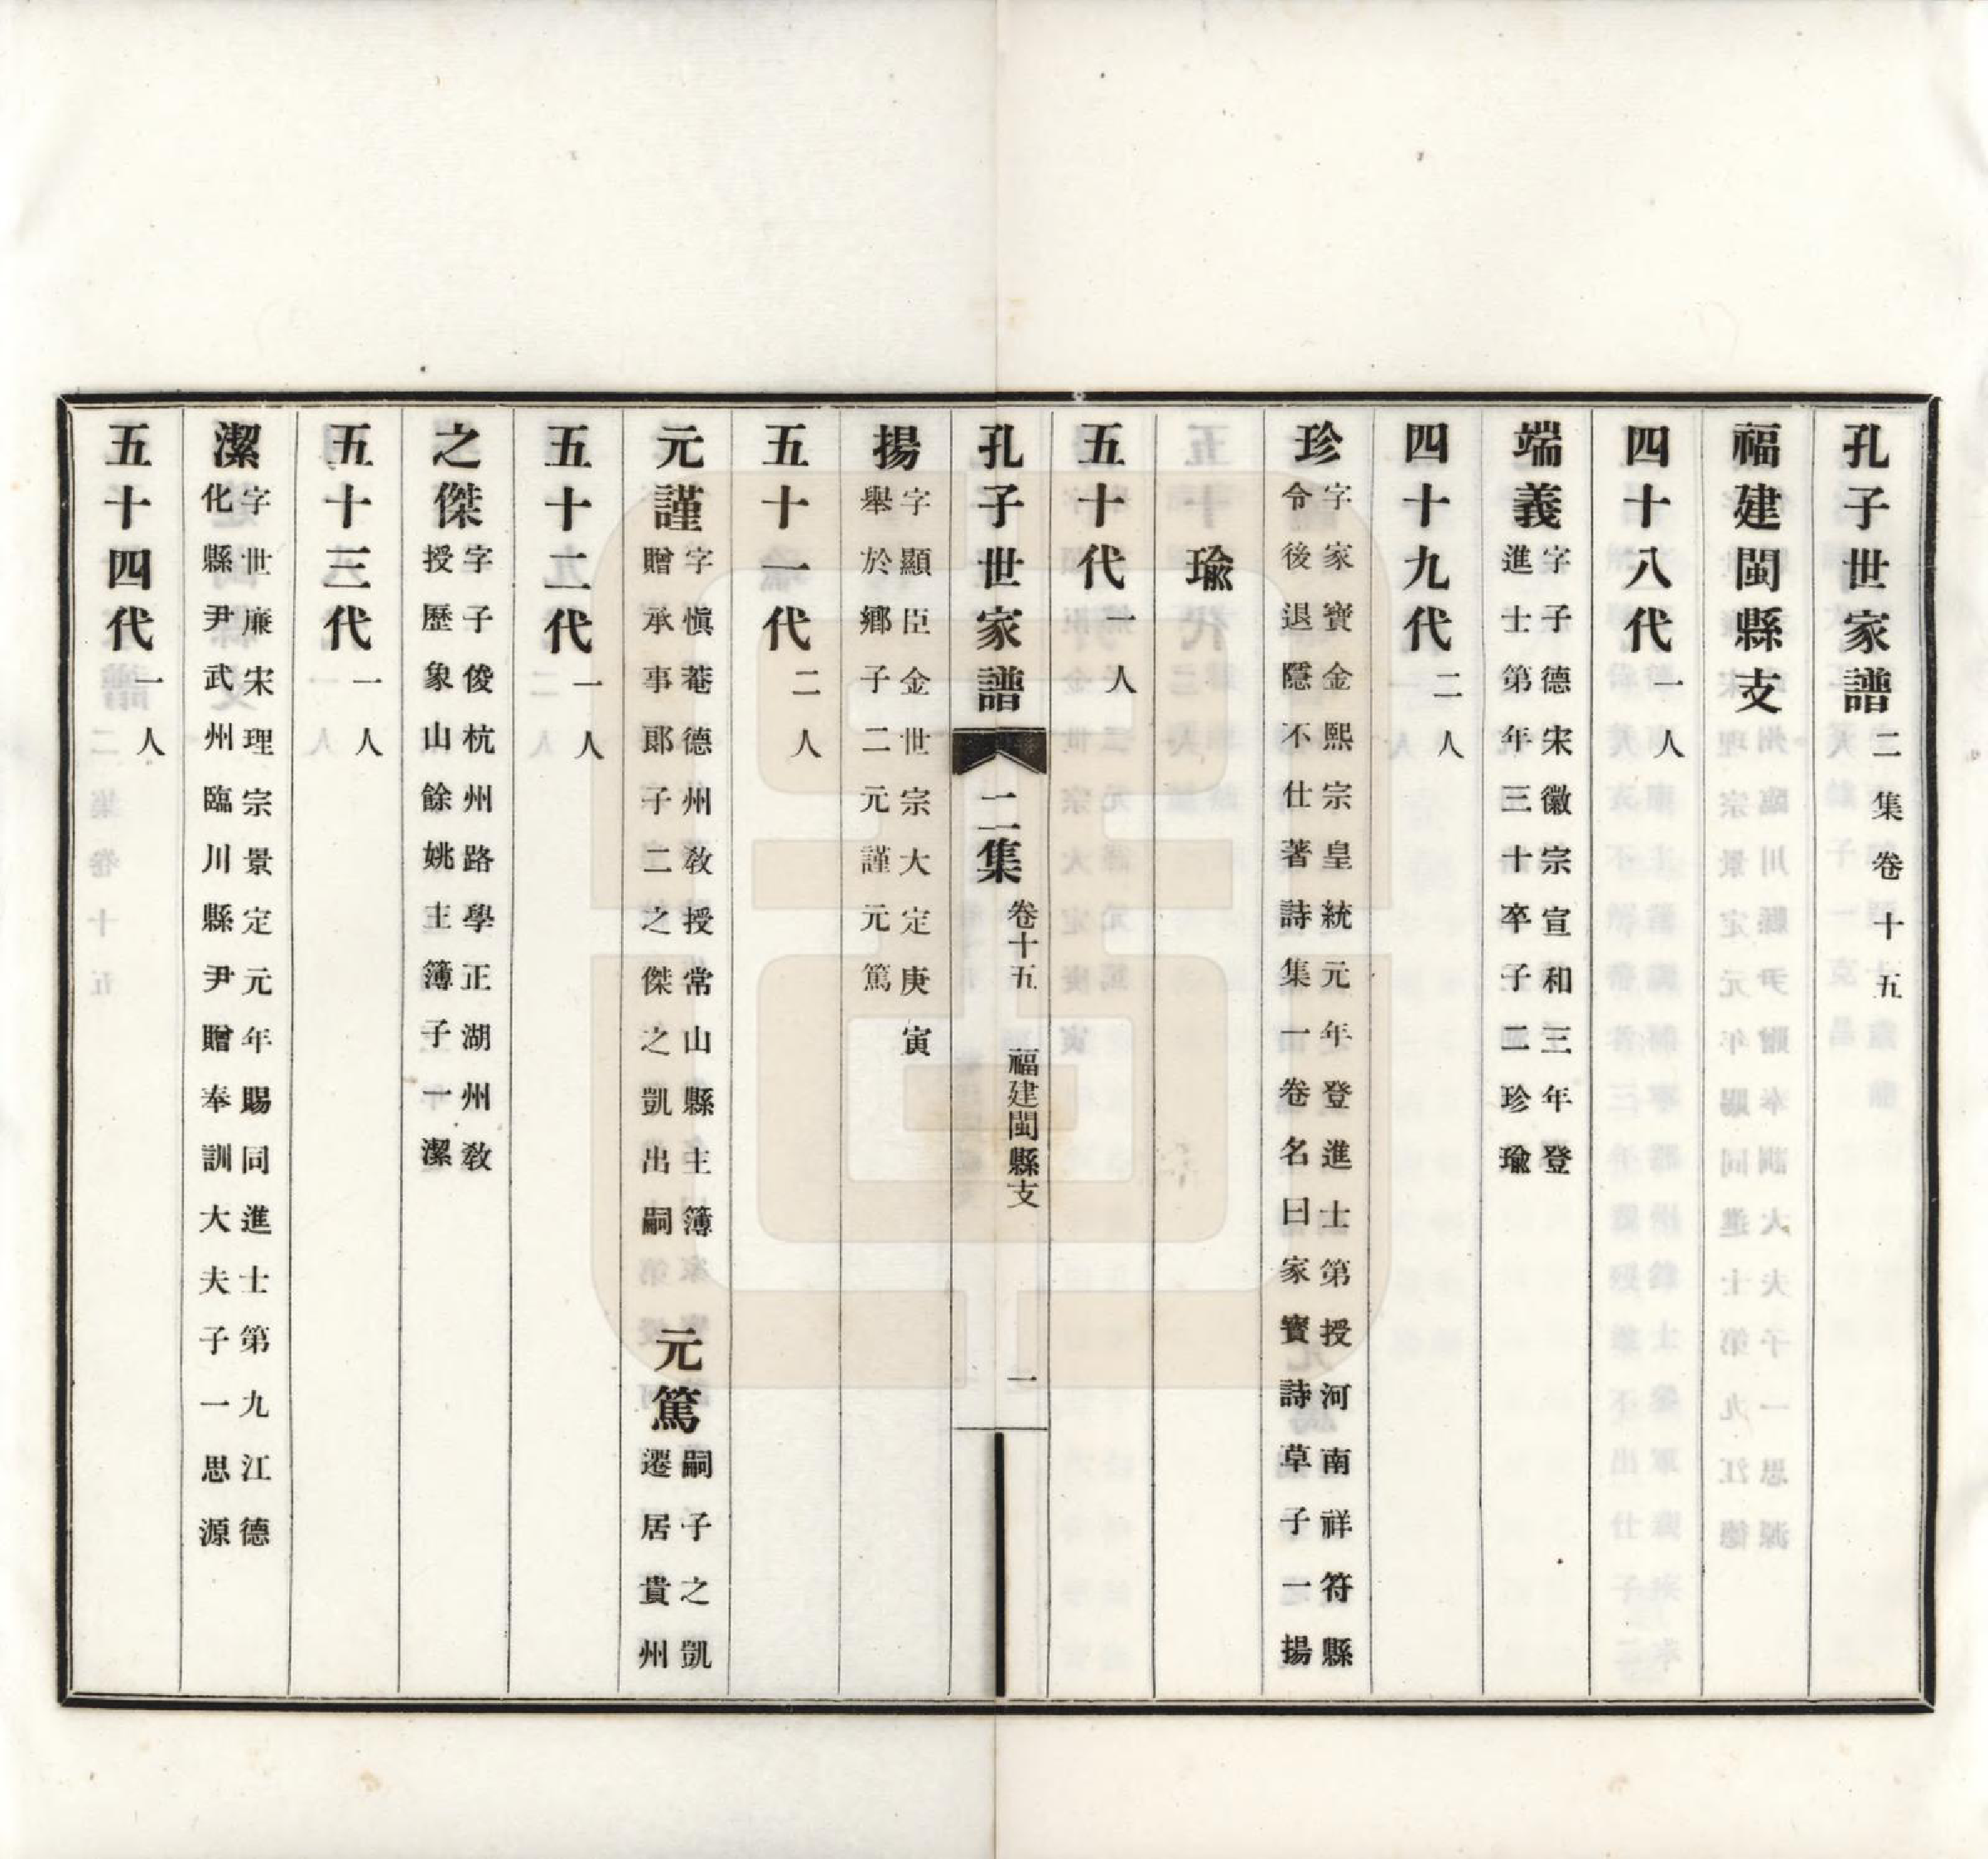 孔子世家譜二集卷十五
福建閩縣支
四十八代一人
端義字子德宋徽宗宣和三年登
進士第年三十卒子二珍瑜
四十九代二人
珍字家寶金熙宗皇統元年登進士第授河南祥符縣
令後退隱不仕著詩集一卷名曰家寶詩草子一揚
瑜
五十代一人
孔子世家譜 二集 卷十五 福建閩縣支 一
揚字顯臣金世宗大定庚寅
舉於鄉子二元謹元篤
五十一代二人
元謹字愼菴德州敎授常山縣主簿
贈承事郞子二之傑之凱出嗣
元篤嗣子之凱
遷居貴州
五十二代一人
之傑字子俊杭州路學正湖州敎
授歷象山餘姚主簿子一潔
五十三代一人
潔字世廉宋理宗景定元年賜同進士第九江德
化縣尹武州臨川縣尹贈奉訓大夫子一思源
五十四代一人